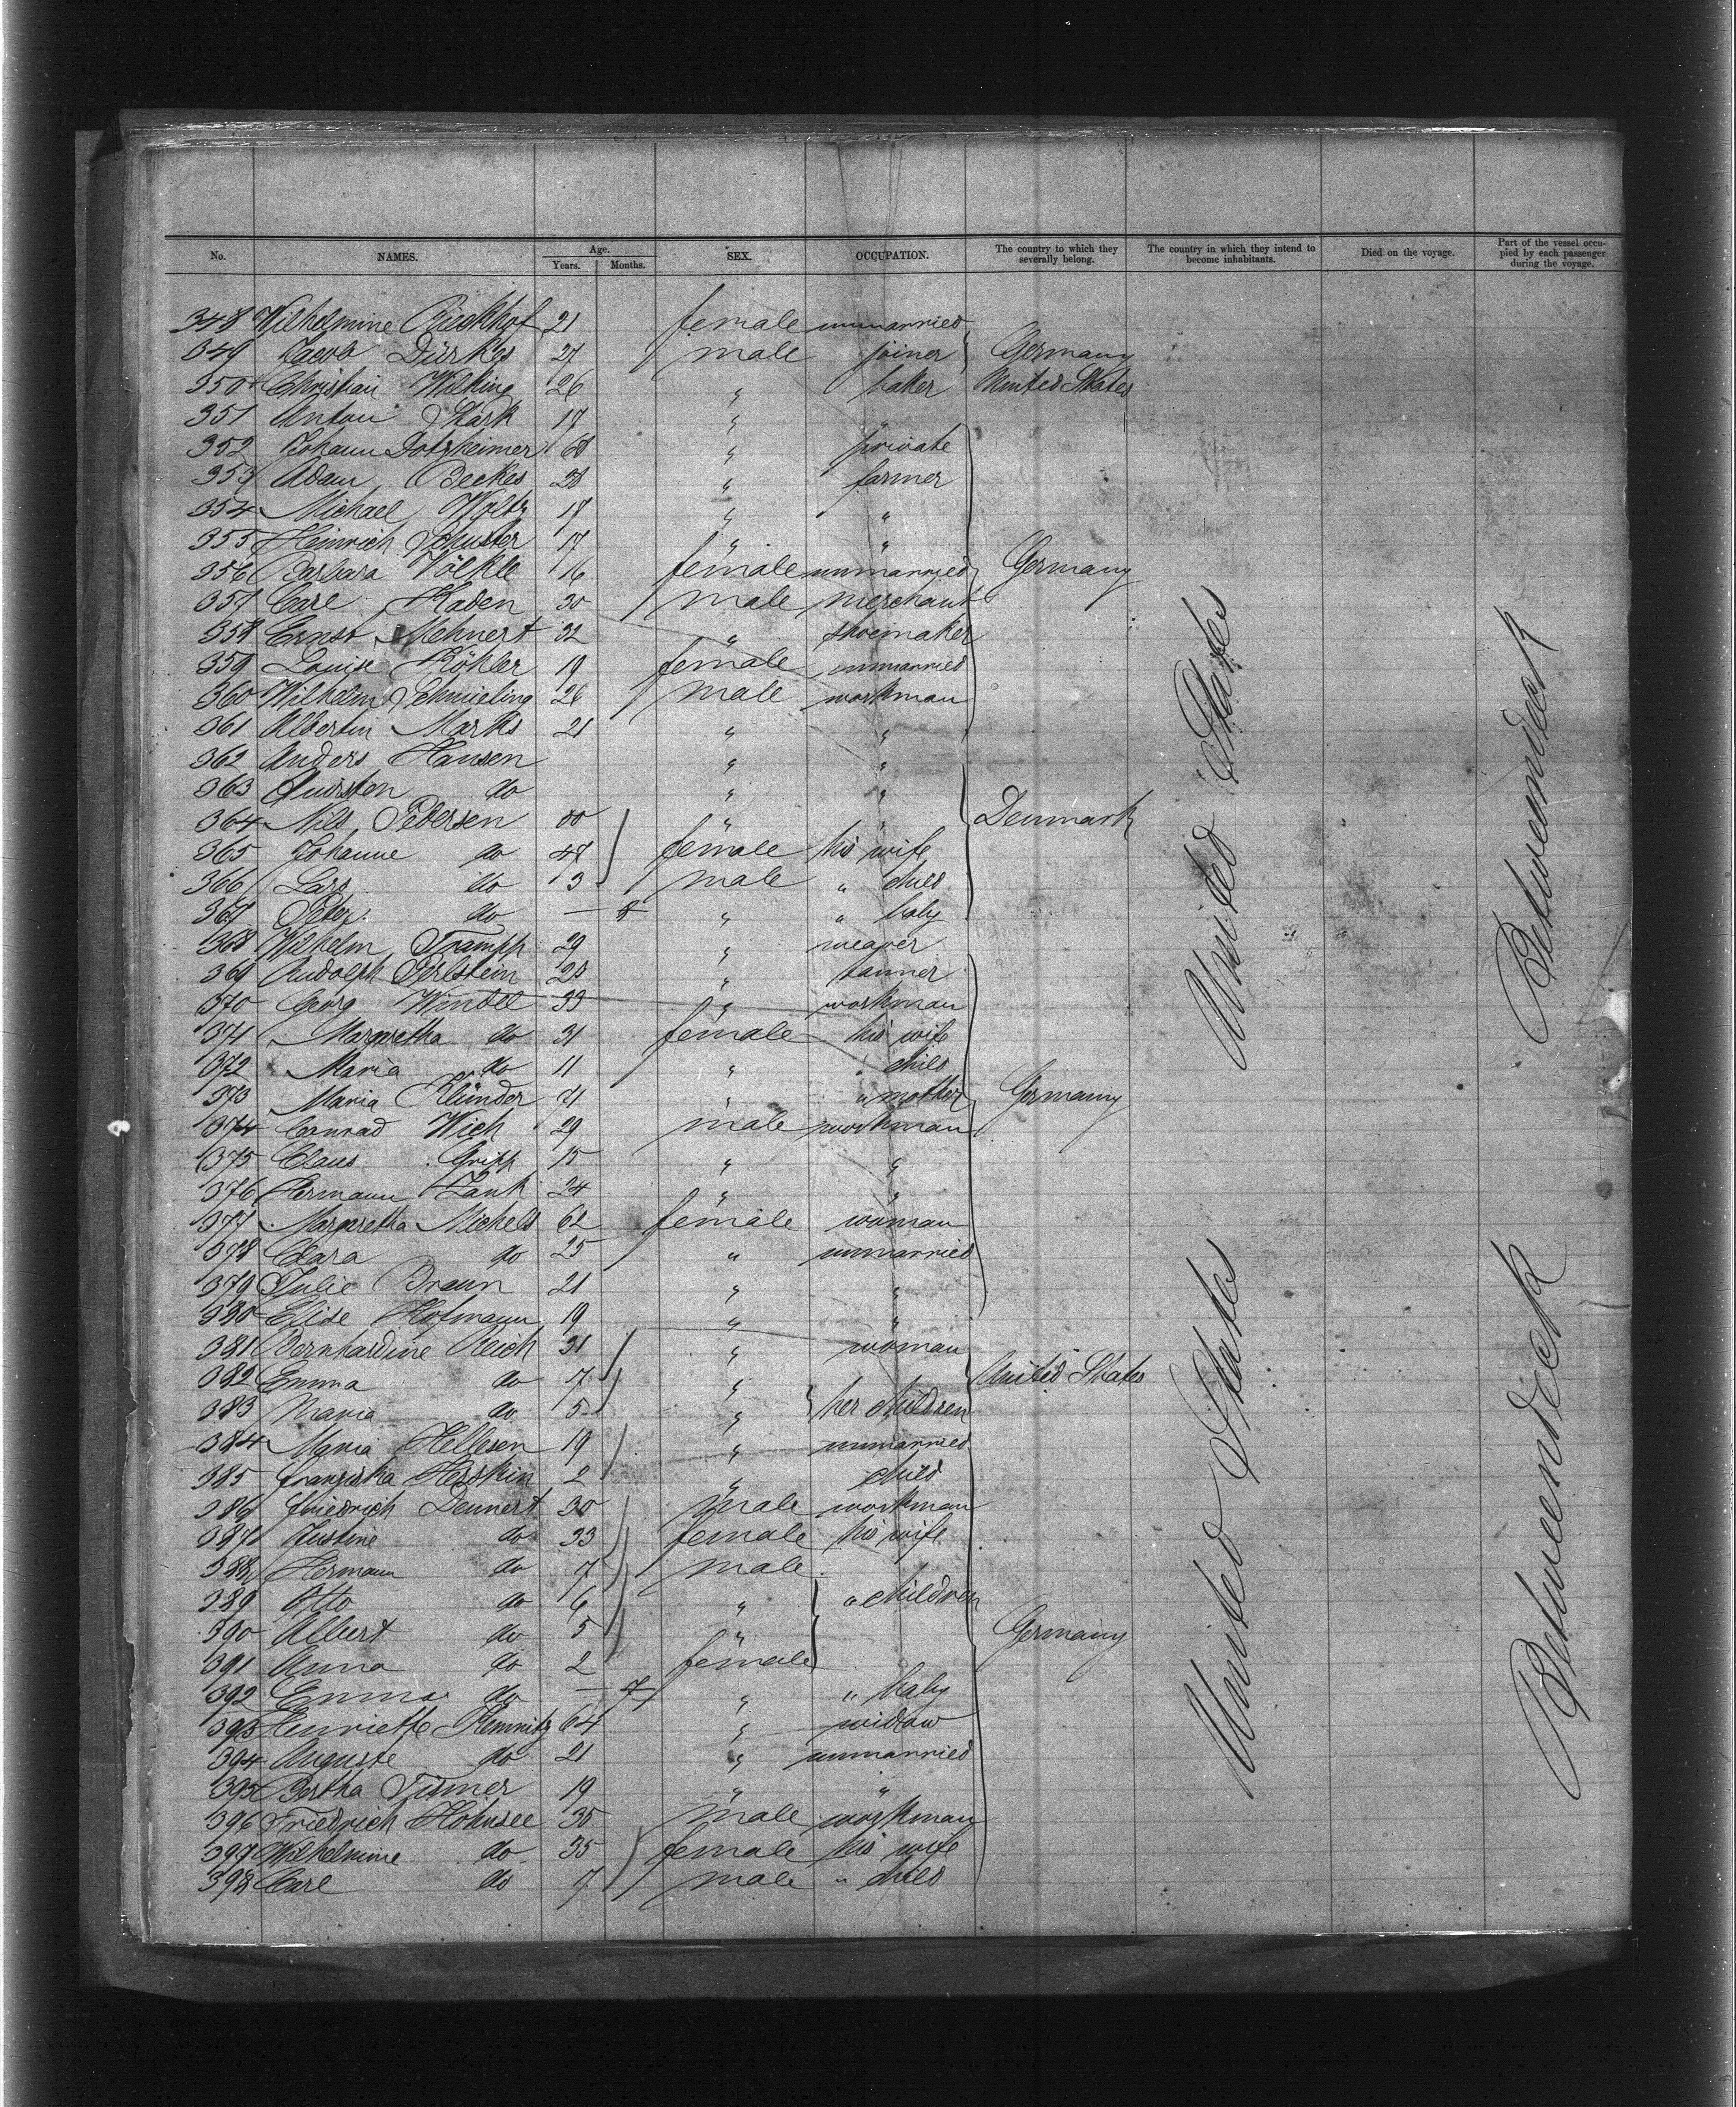 No. NAMES. Age. Years. Months. SEX. OCCUPATION. The country to which they severally belong. The country in which they intend to become inhabitants. Died on the voyage. Part of the vessel occupied by each passenger during the voyage.
348 Wilhelmine 21 female unmarried
349 Jacob Dürkes 27 male joiner Germany
350 Christian Wilking 26 " baker United States
351 Anton Stark 17 " "
352 Johann Dotzheimer 68 " private
353 Adam Beckes 28 " farmer
354 Michael Woltz 18 " "
355 Heinrich Schuster 17 " "
356 Barbara Völkle 16 female unmarried Germany
357 Carl Kaden 30 male merchant
358 Ernst Mehnert 32 " shoemaker
359 Louise Köhler 19 female unmarried
360 Wilhelm Schmieling 26 male workman
361 Albertin Marks 21 " "
362 Anders Hansen " "
363 do " "
364 Nils Pedersen " " Denmark
365 Johanne do 47 female his wife
366 Lars do 3 male " child
367 Peter do — 8 " " baby
368 Wilhelm Trampp 29 " weaver
369 Rudolph Perlstein 28 " tanner
370 Georg Windel 33 " workman
371 Margaretha do 31 female his wife
372 Maria do 11 " " child
373 Maria Klünder 71 " " mother Germany
374 Conrad Wich 29 male workman
375 Claus Gripp 15 " "
376 Hermann Zank 24 " "
377 Margaretha Michels 62 female woman
378 Clara do 25 " unmarried
379 Julie Braun 21 " "
380 Elise Hofmann 19 " "
381 Bernhardine Reich 31 " woman
382 Emma do 7 " United States
383 Maria do 5 " her children
384 Maria Hellesen 19 " unmarried
385 Franziska 2 " child
386 Friedrich Dennert 30 male workman
387 Justine do 33 female his wife
388 Hermann do 7 male
389 Otto do 6 " " children
390 Albert do 5 " Germany
391 Anna do 2 female
392 Emma do — 7 " " baby
393 Henriette Kemnitz 64 " widow
394 Auguste do 21 " unmarried
395 Bertha 19 " "
396 Friedrich Hohnsee 35 male workman
397 Wilhelmine do 35 female his wife
398 Carl do 7 male " child
United States
United States
Betweendeck
Betweendeck